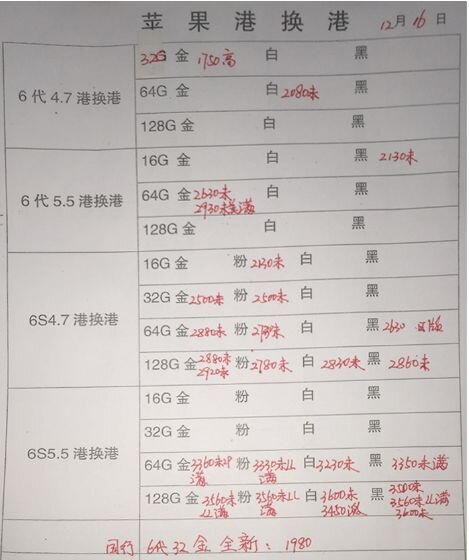 苹果港换港 12月16日
6代4.7港换港
32G 金 1750高 白 黑
64G 金 白 2080未 黑
128G 金 白 黑
6代5.5港换港
16G 金 白 黑 2130未
64G 金 2630未 白 黑
2930未 满
128G 金 白 黑
6S4.7港换港
16G 金 粉 2130未 白 黑
32G 金 2500未 粉 2500未 白 黑
64G 金 2880未 粉 未 白 黑 2630 版
128G 金 2880未 2920未 粉 2780未 白 2830未 黑 2860未
6S5.5港换港
16G 金 粉 白 黑
32G 金 粉 白 黑
64G 金 3360未 满 粉 3330 LL 满 白 3230未 黑 3350未满
128G 金 3560未 LL满 粉 3560未LL 满 白 3600未 3450 黑 3500未 3560未LL满 3600未
国行 6代32金全新：1980